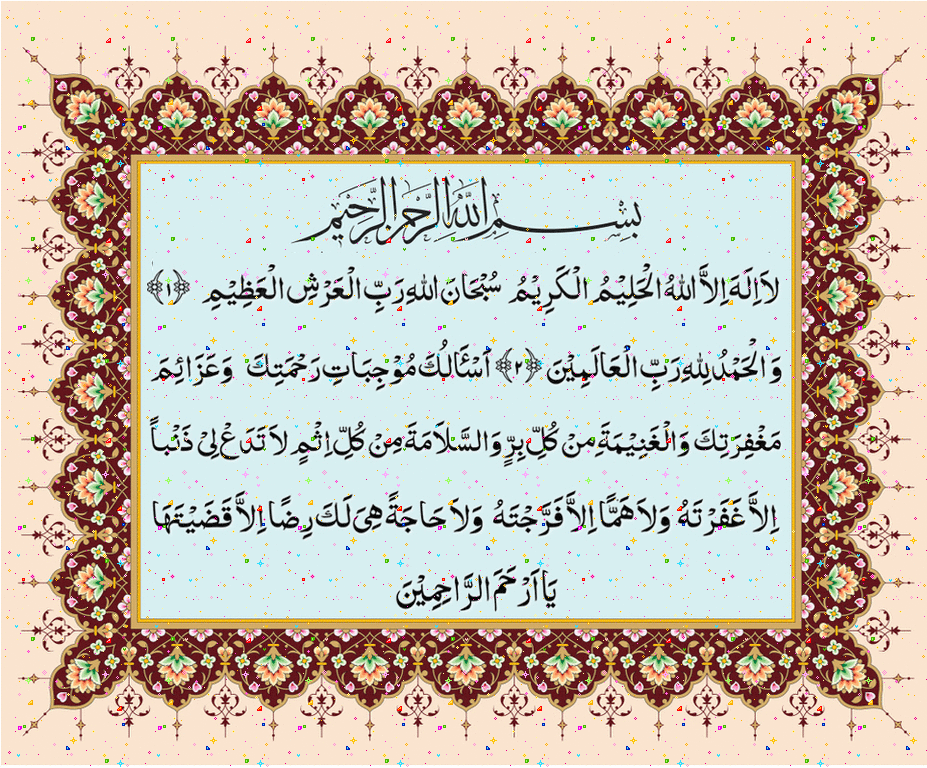 بِسْمِ اللهِ الرَّحْمٰنِ الرَّحِيْمِ
لاَ اِلٰهَ اِلاَّ اللهُ الْحَلِيْمُ الْكَرِيْمُ سُبْحَانَ اللهِ رَبِّ الْعَرْشِ الْعَظِيْمِ ﴿١﴾
وَالْحَمْدُ لِلهِ رَبِّ الْعَالَمِيْنَ ﴿٢﴾ اَسْئَالُكَ مُوْجِبَاتِ رَحْمَتِكَ وَعَزَائِمَ
مَغْفِرَتِكَ وَالْغَنِيْمَةَ مِنْ كُلِّ بِرٍّ وَالسَّلاَمَةَ مِنْ كُلِّ اِثْمٍ لاَ تَدَعْ لِىْ ذَنْباً
اِلاَّ غَفَرْتَهُ وَلاَ هَمًّا اِلاَّ فَرَّجْتَهُ وَلاَ حَاجَةً هِىَ لَكَ رِضًا اِلاَّ قَضَيْتَهَا
يَا اَرْحَمَ الرَّاحِمِيْنَ